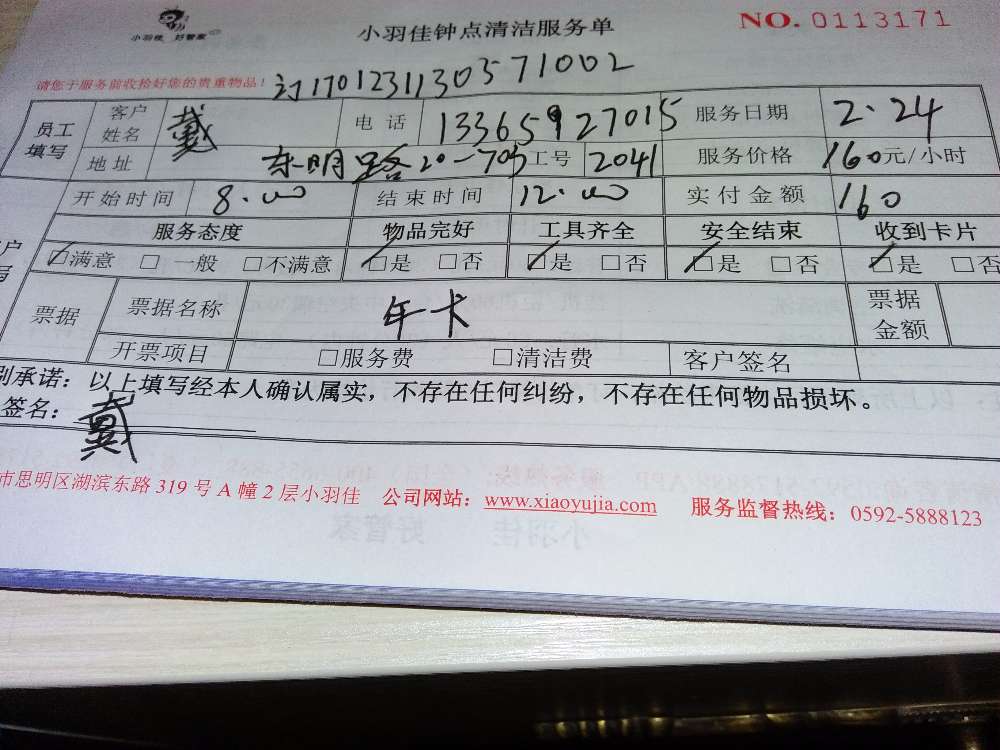 小羽佳 好管家
小羽佳钟点清洁服务单
NO. 0113171
请您于服务前收拾好您的贵重物品!
订17012311305571002
员工填写 客户姓名 戴 电话 13365927015 服务日期 2.24
地址 东明路20-705 工号 2041 服务价格 160元/小时
开始时间 8.00 结束时间 12.00 实付金额 160
服务态度 物品完好 工具齐全 安全结束 收到卡片
☑满意 □一般 □不满意 ☑是 □否 ☑是 □否 ☑是 □否 ☑是 □否
票据 票据名称 年卡 票据金额
开票项目 □服务费 □清洁费 客户签名
承诺:以上填写经本人确认属实,不存在任何纠纷,不存在任何物品损坏。
签名:戴
市思明区湖滨东路 319 号 A 幢 2 层小羽佳 公司网站:www.xiaoyujia.com 服务监督热线:0592-5888123